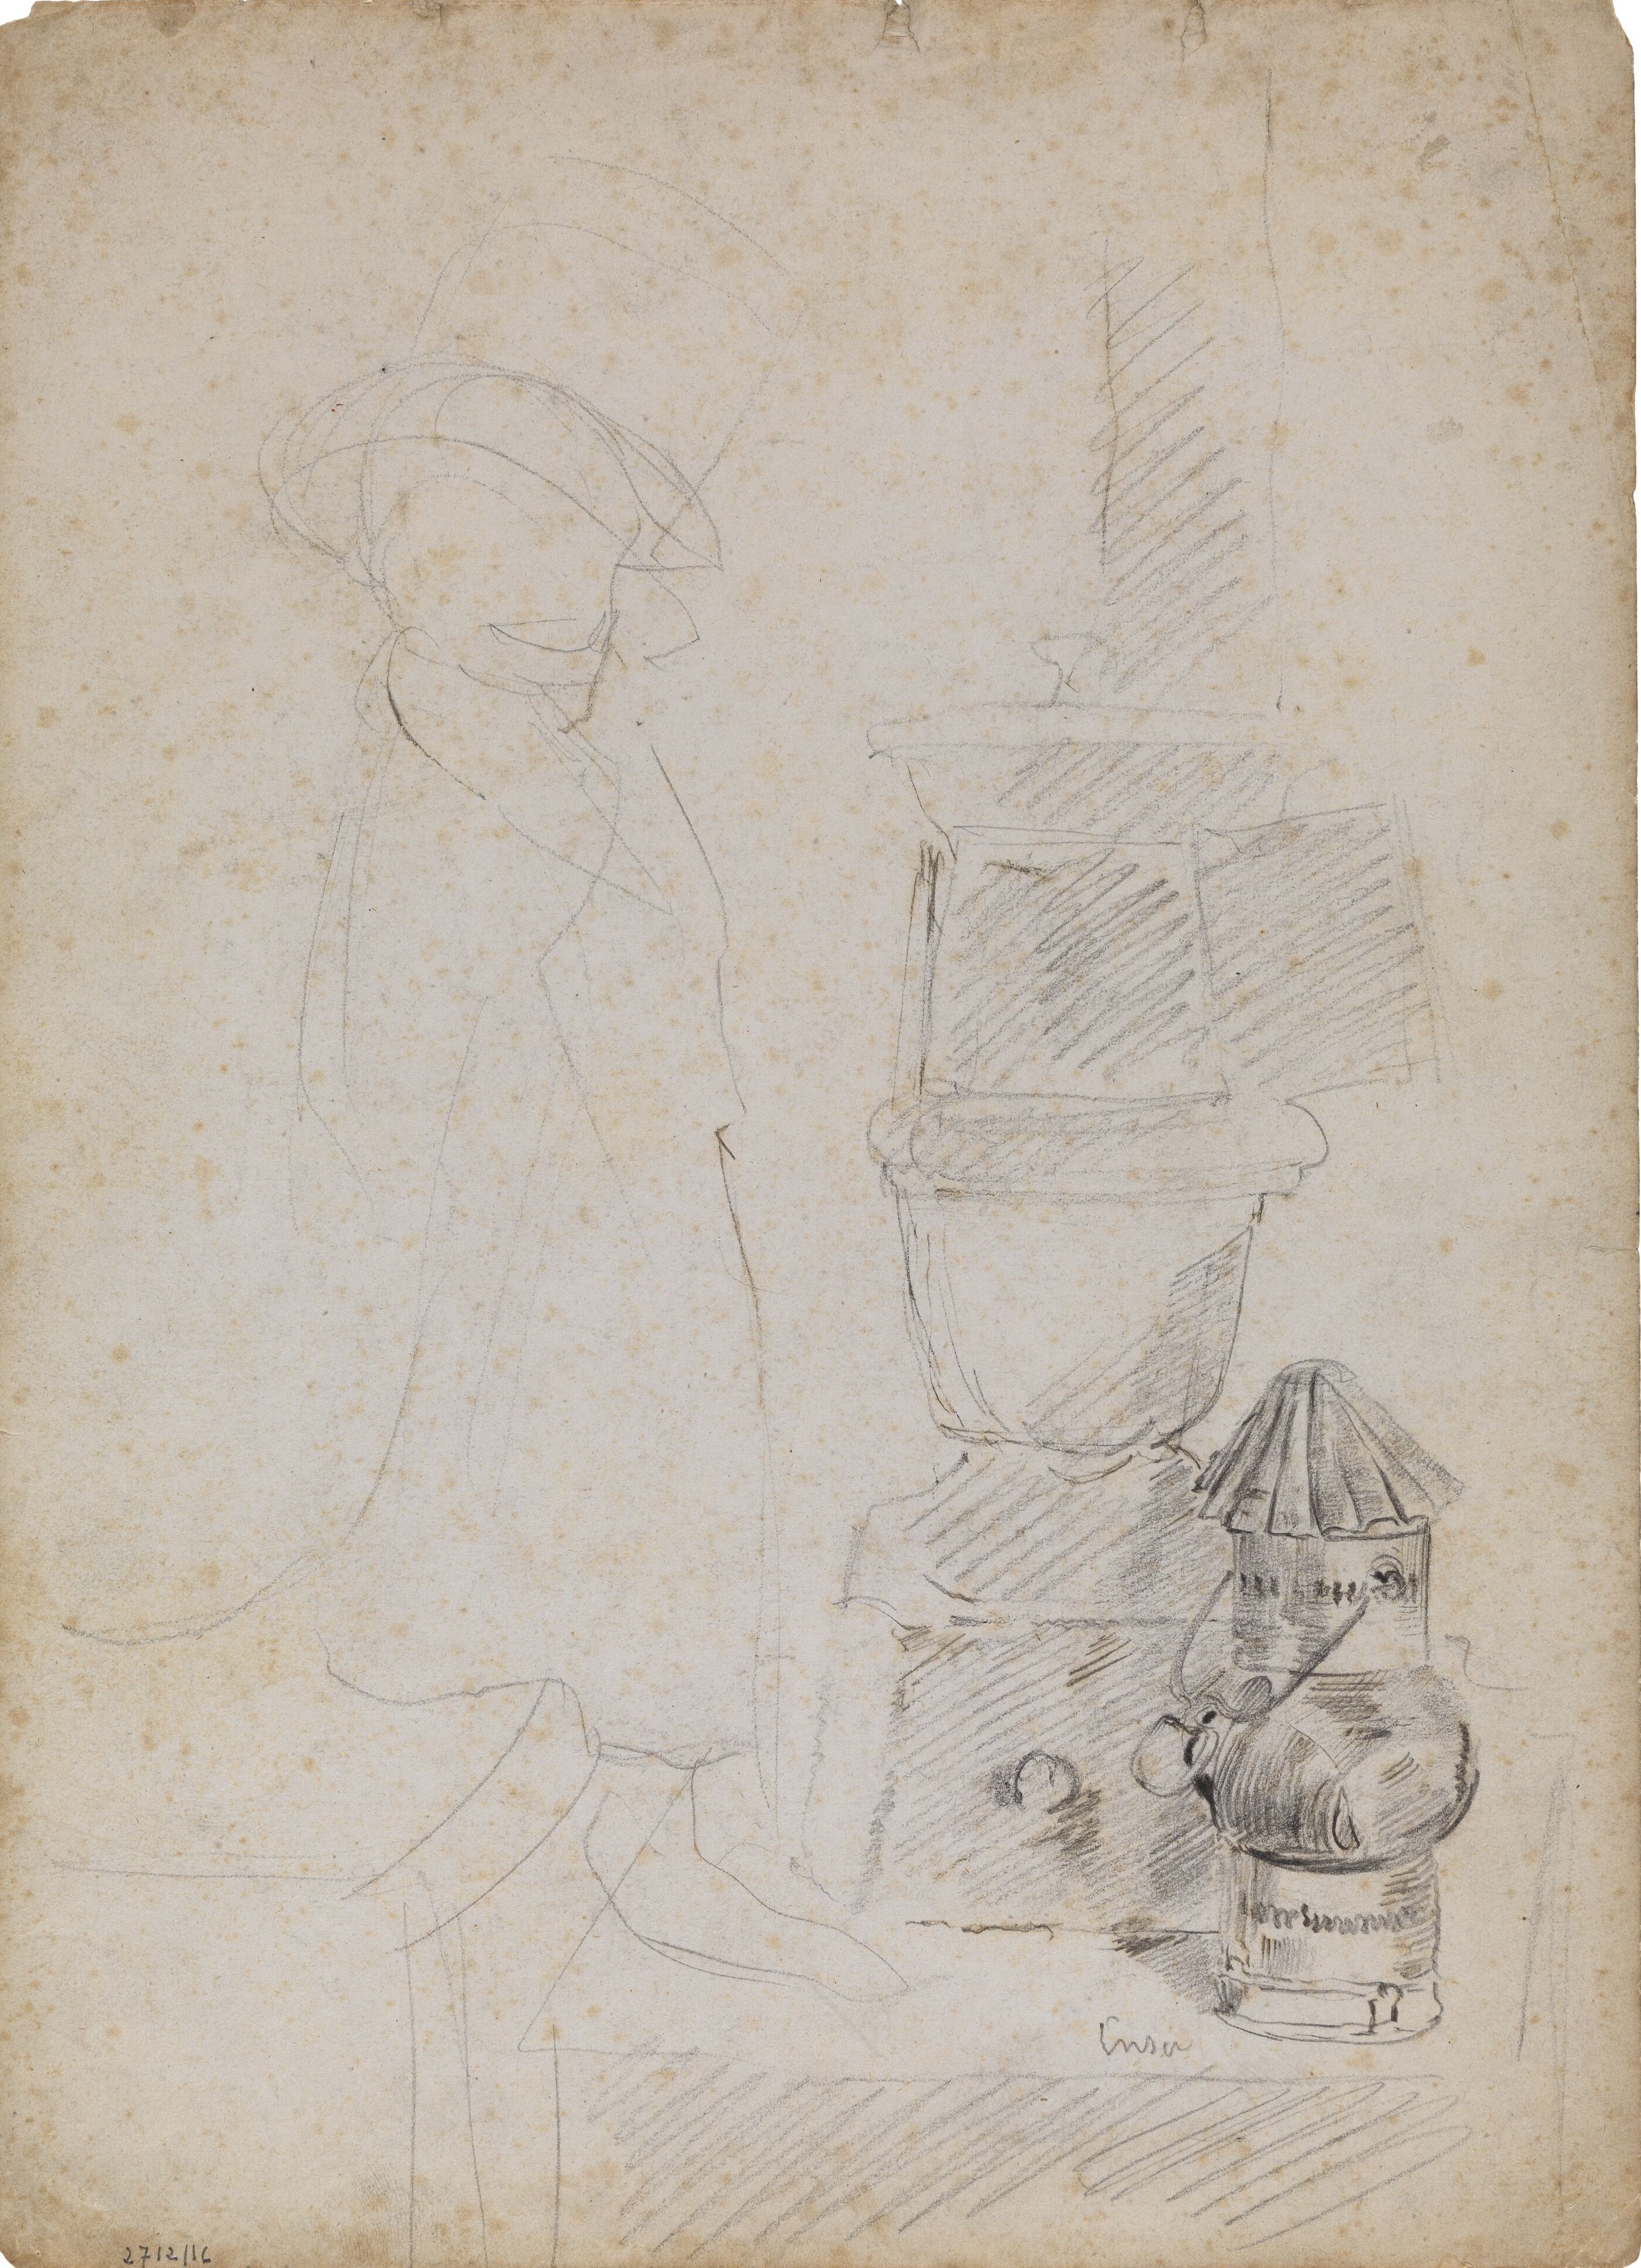 Ensor
2712/16